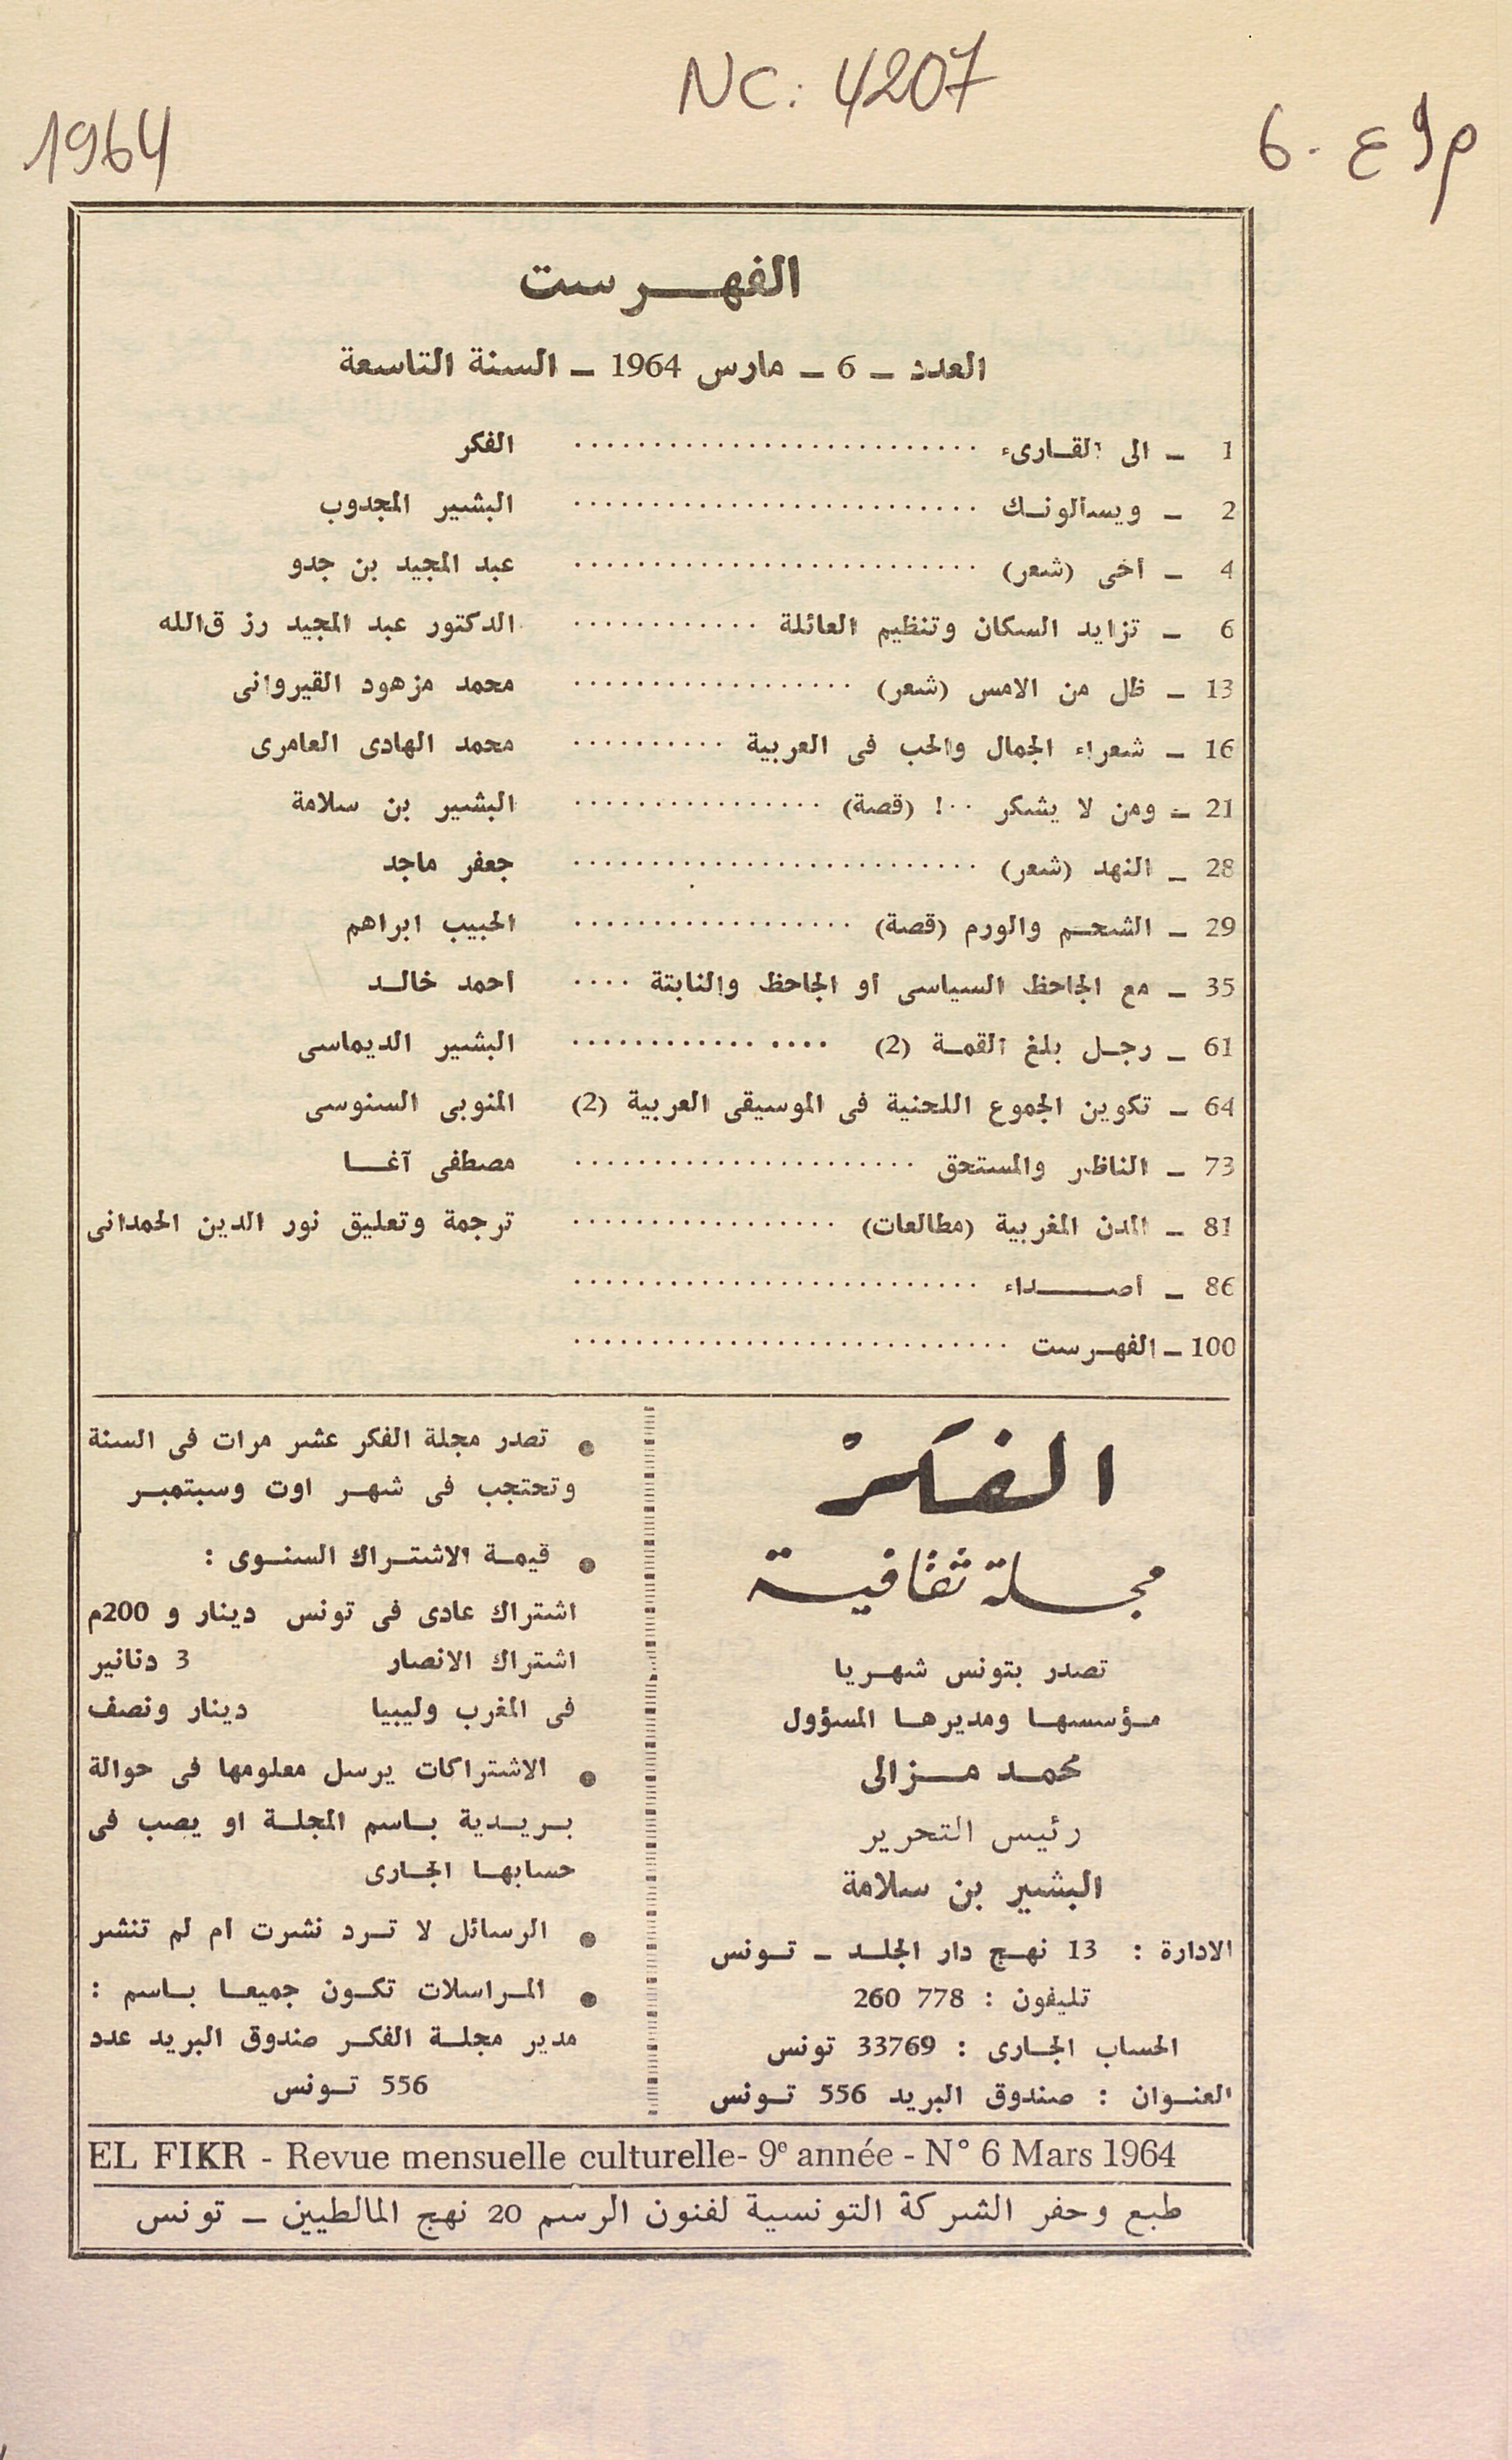 NC: 4207
1964
م9 ع 6.
الفهرست
العدد – 6 – مارس 1964 – السنة التاسعة
1 – الى القارىء .......................... الفكر
2 – ويسألونك .......................... البشير المجدوب
4 – أخى (شعر) .......................... عبد المجيد بن جدو
6 – تزايد السكان وتنظيم العائلة ............ الدكتور عبد المجيد رز قالله
13 – ظل من الامس (شعر) .................. محمد مزهود القيروانى
16 – شعراء الجمال والحب فى العربية .......... محمد الهادى العامرى
21 – ومن لا يشكر ..! (قصة) ................ البشير بن سلامة
28 – النهد (شعر) .......................... جعفر ماجد
29 – الشحم والورم (قصة) .................. الحبيب ابراهم
35 – مع الجاحظ السياسى أو الجاحظ والنابتة .... احمد خالد
61 – رجل بلغ القمة (2) .... ............ البشير الديماسى
64 – تكوين الجموع اللحنية فى الموسيقى العربية (2) المنوبى السنوسى
73 – الناظر والمستحق ...................... مصطفى آغا
81 – المدن المغربية (مطالعات) ................. ترجمة وتعليق نور الدين الحمدانى
86 – أصداء ..........................
100 – الفهرست ............................
الفكر
مجلة ثقافية
تصدر بتونس شهريا
مؤسسها ومديرها المسؤول
محمد مزالى
رئيس التحرير
البشير بن سلامة
الادارة : 13 نهج دار الجلد – تونس
تليفون : 778 260
الحساب الجارى : 33769 تونس
العنوان : صندوق البريد 556 تونس
● تصدر مجلة الفكر عشر مرات فى السنة
وتحتجب فى شهر اوت وسبتمبر
● قيمة الاشتراك السنوى :
اشتراك عادى فى تونس دينار و 200م
اشتراك الانصار 3 دنانير
فى المغرب وليبيا دينار ونصف
● الاشتراكات يرسل معلومها فى حوالة
بريدية باسم المجلة او يصب فى
حسابها الجارى
● الرسائل لا ترد نشرت ام لم تنشر
● المراسلات تكون جميعا باسم :
مدير مجلة الفكر صندوق البريد عدد
556 تونس
EL FIKR - Revue mensuelle culturelle- 9e année - N° 6 Mars 1964
طبع وحفر الشركة التونسية لفنون الرسم 20 نهج المالطيين – تونس